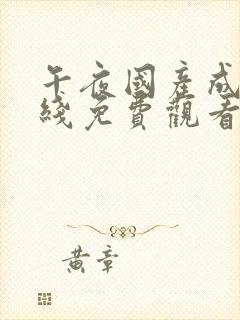 午夜國產成
綫免費觀看
黃章